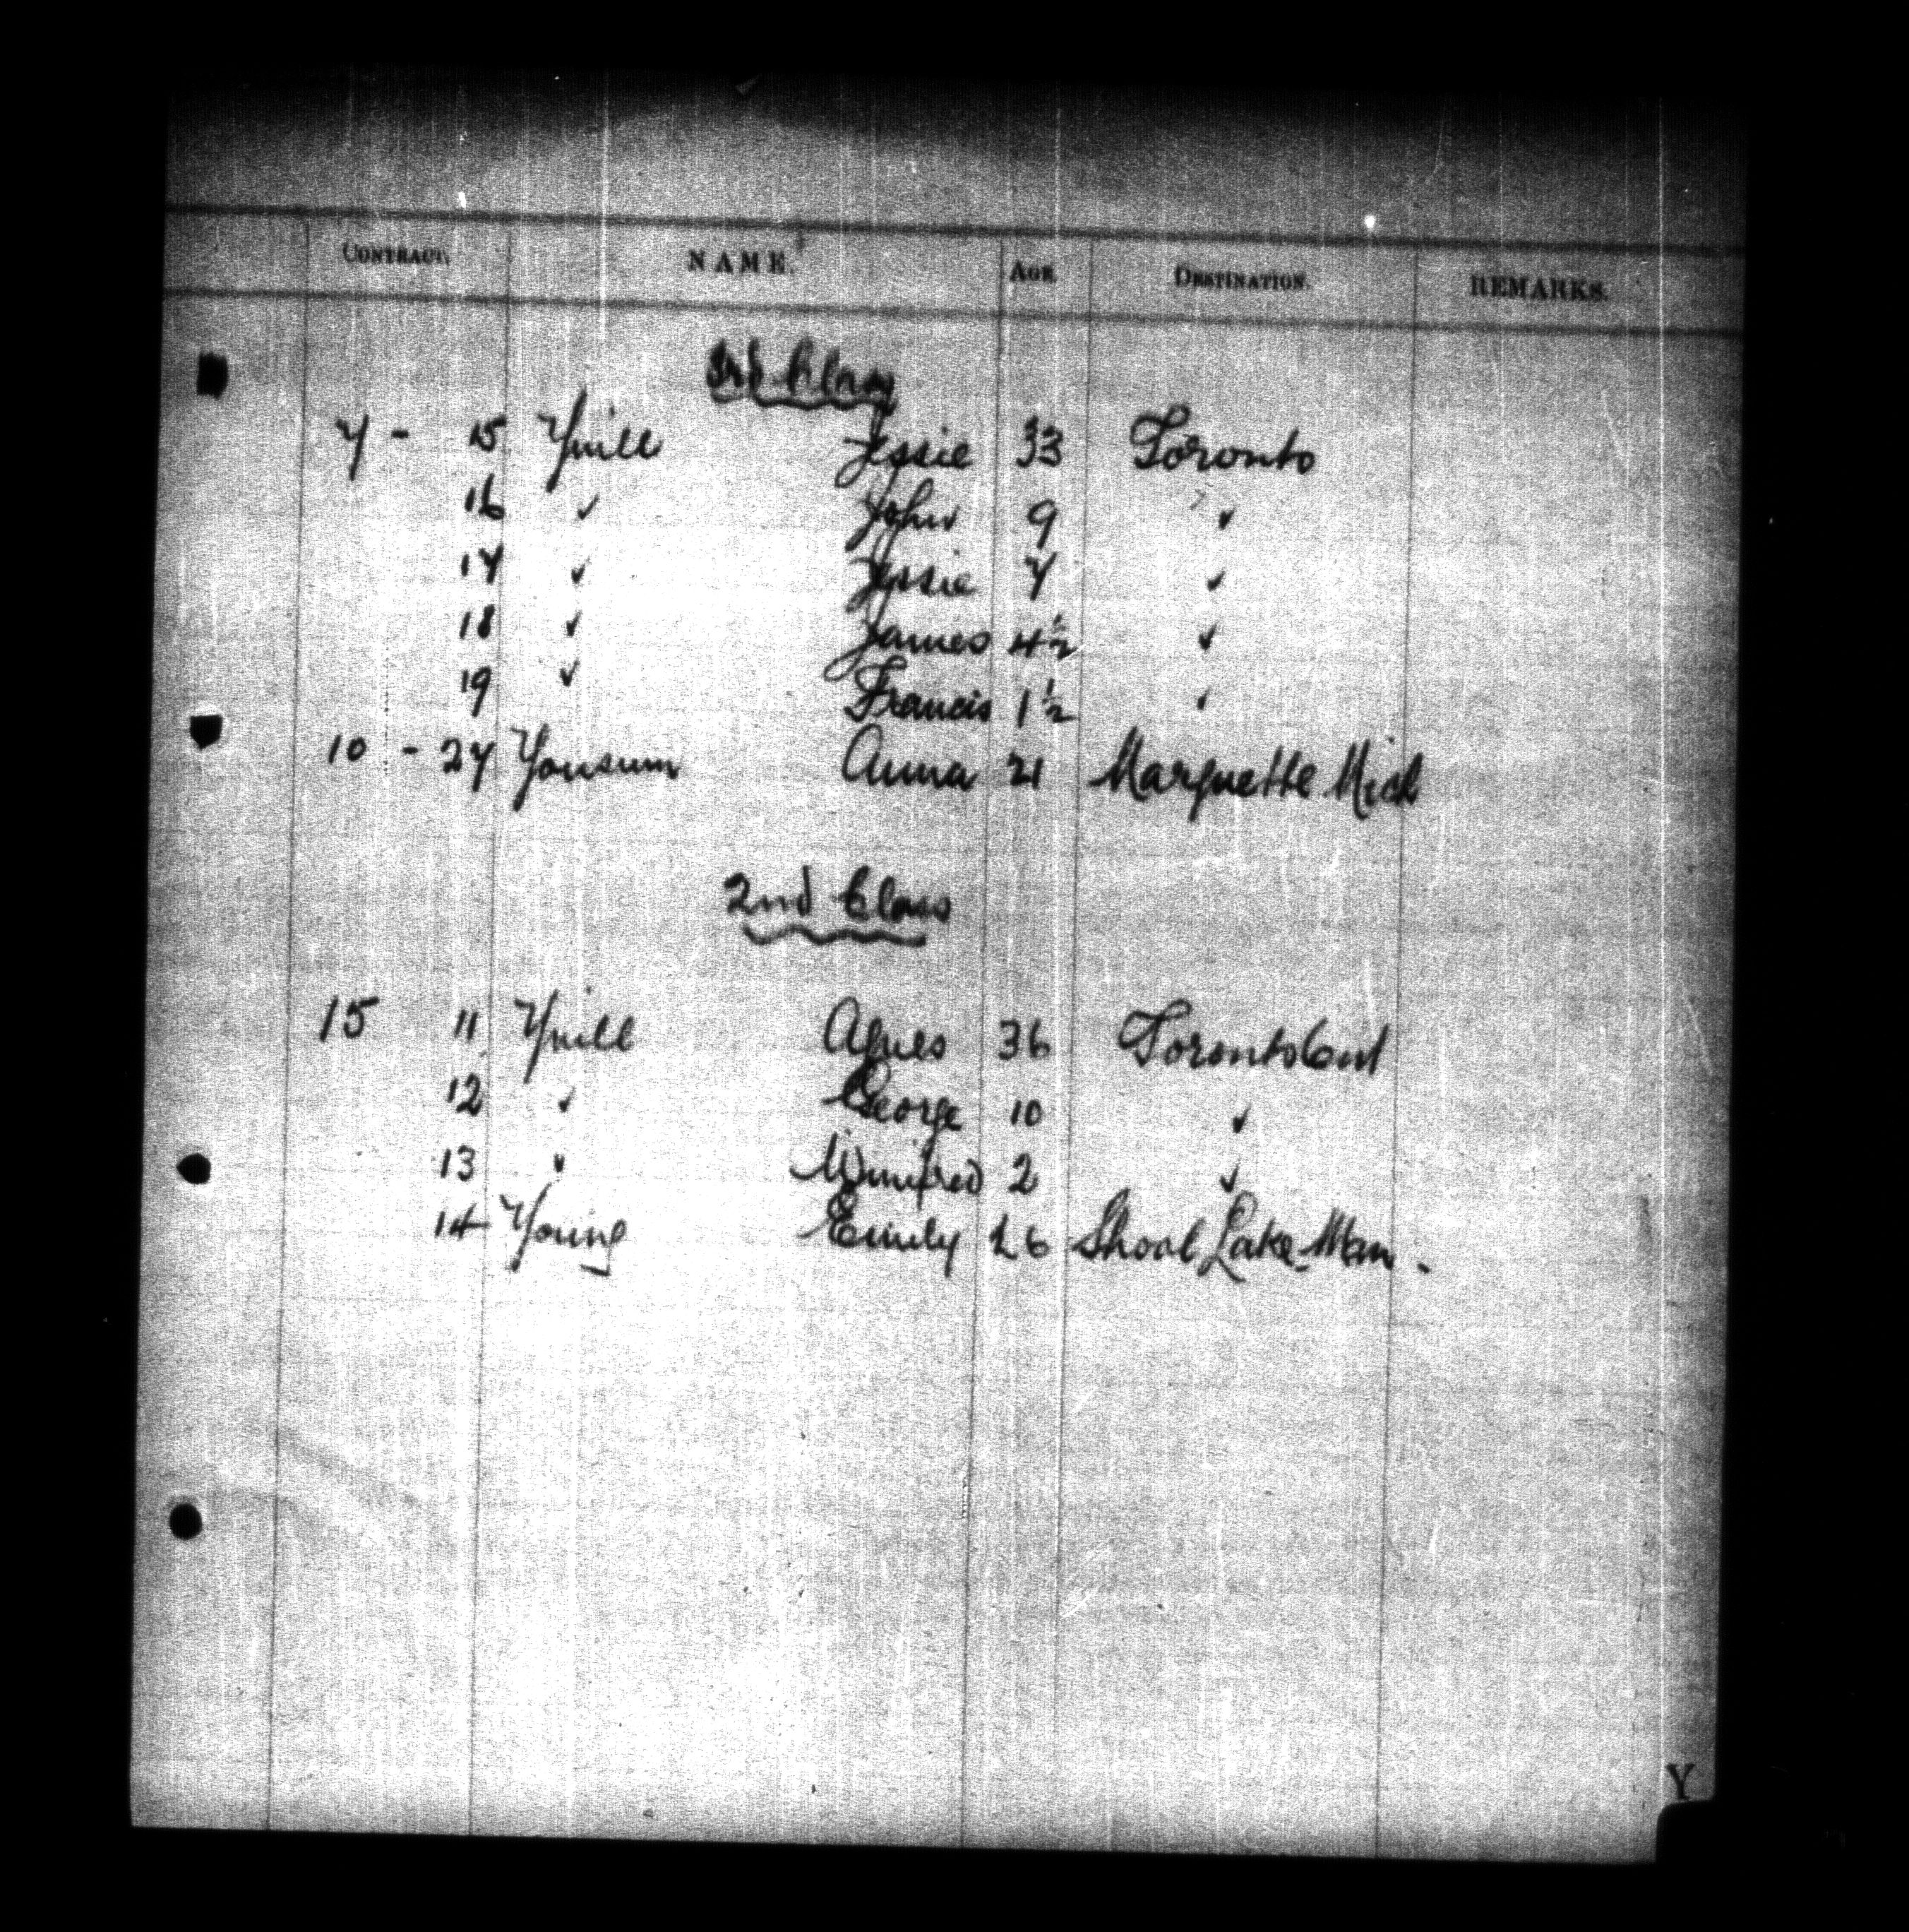 CONTRACT. NAME. AGE. DESTINATION. REMARKS.
3rd Class
7 - 15 Yuill Jessie 33 Toronto
16 ✓ John 9 ✓
17 ✓ Jessie 7 ✓
18 ✓ James 4½ ✓
19 ✓ Francis 1½ ✓
10 - 27 Yousum Anna 21 Marquette Mich
2nd Class
15 11 Yuill Agnes 36 Toronto Ont
12 ✓ George 10 ✓
13 ✓ Winifred 2 ✓
14 Young Emily 26 Shoal Lake Man.
Y